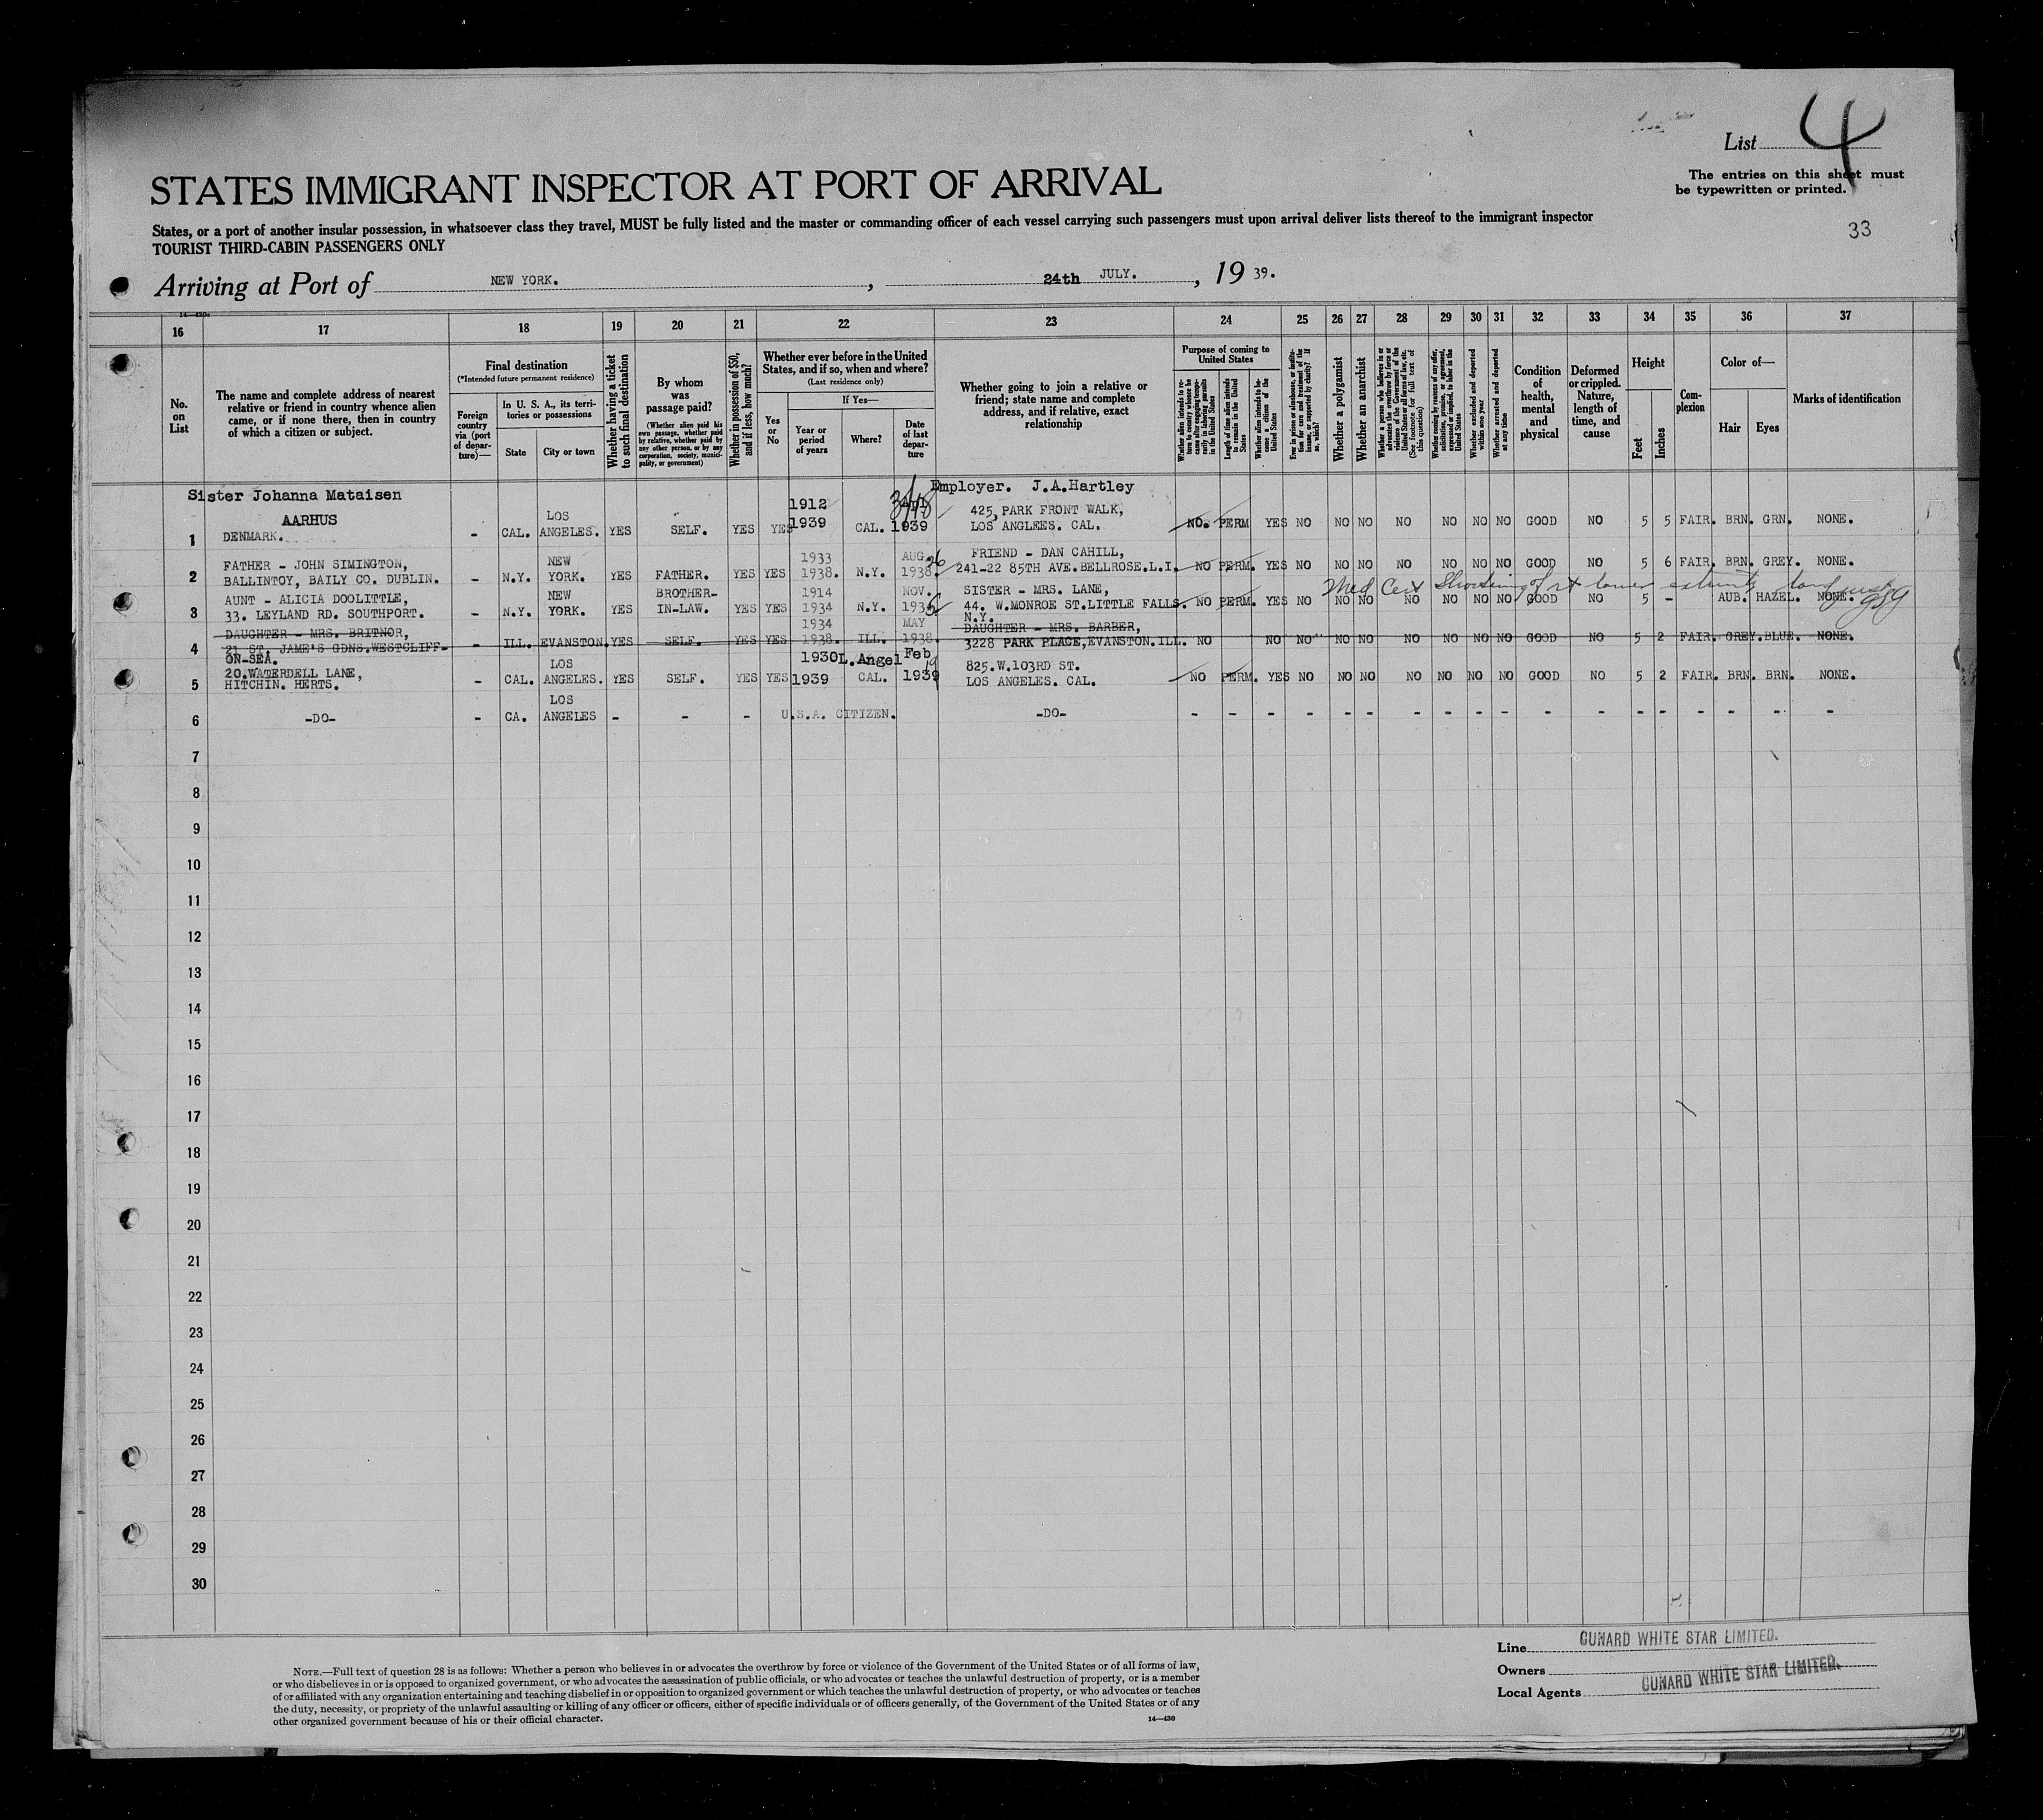 List 4
The entries on this sheet must
be typewritten or printed.
33
STATES IMMIGRANT INSPECTOR AT PORT OF ARRIVAL
States, or a port of another insular possession, in whatsoever class they travel, MUST be fully listed and the master or commanding officer of each vessel carrying such passengers must upon arrival deliver lists thereof to the immigrant inspector
TOURIST THIRD-CABIN PASSENGERS ONLY
Arriving at Port of NEW YORK. , 24th JULY. , 19 39.
14—430a
16 17 18 19 20 21 22 23 24 25 26 27 28 29 30 31 32 33 34 35 36 37
No.
on
List
The name and complete address of nearest
relative or friend in country whence alien
came, or if none there, then in country
of which a citizen or subject.
Final destination
(*Intended future permanent residence)
Foreign
country
via (port
of depar-
ture)—
In U. S. A., its terri-
tories or possessions
State
City or town
Whether having a ticket
to such final destination
By whom
was
passage paid?
(Whether alien paid his
own passage, whether paid
by relative, whether paid by
any other person, or by any
corporation, society, munici-
pality, or government)
Whether in possession of $50,
and if less, how much?
Whether ever before in the United
States, and if so, when and where?
(Last residence only)
Yes
or
No
If Yes—
Year or
period
of years
Where?
Date
of last
depar-
ture
Whether going to join a relative or
friend; state name and complete
address, and if relative, exact
relationship
Purpose of coming to
United States
Length of time alien intends
to remain in the United
States
Whether alien intends to be-
come a citizen of the
United States
Whether a polygamist
Whether an anarchist
Whether excluded and deported
within one year
Whether arrested and deported
at any time
Condition
of
health,
mental
and
physical
Deformed
or crippled.
Nature,
length of
time, and
cause
Height
Feet
Inches
Com-
plexion
Color of—
Hair
Eyes
Marks of identification
Sister Johanna Mataisen Employer. J.A.Hartley
AARHUS LOS 1912 425, PARK FRONT WALK,
1 DENMARK. - CAL. ANGELES. YES SELF. YES YES 1939 CAL. 1939 LOS ANGLEES. CAL. NO. PERM YES NO NO NO NO NO NO NO GOOD NO 5 5 FAIR. BRN. GRN. NONE.
FATHER - JOHN SIMINGTON, NEW 1933 AUG. 26 FRIEND - DAN CAHILL,
2 BALLINTOY, BAILY CO. DUBLIN. - N.Y. YORK. YES FATHER. YES YES 1938. N.Y. 1938. 241-22 85TH AVE.BELLROSE.L.I. NO PERM. YES NO NO NO NO NO NO NO GOOD NO 5 6 FAIR. BRN. GREY. NONE.
Med Cert
AUNT - ALICIA DOOLITTLE, NEW BROTHER- 1914 NOV. SISTER - MRS. LANE,
3 33. LEYLAND RD. SOUTHPORT. - N.Y. YORK. YES IN-LAW. YES YES 1934 N.Y. 44. W.MONROE ST.LITTLE FALLS. NO PERM. YES NO NO NO NO NO NO NO GOOD NO 5 - AUB. HAZEL. NONE.
N.Y.
DAUGHTER - MRS. BRITNOR, 1934 MAY DAUGHTER - MRS. BARBER,
4 21 ST. JAME'S GDNS.WESTCLIFF- - ILL. EVANSTON. YES SELF. YES YES 1938. ILL. 1938. 3228 PARK PLACE,EVANSTON.ILL. NO NO NO NO NO NO NO NO NO GOOD NO 5 2 FAIR. GREY. BLUE. NONE.
ON-SEA.
20.WATERDELL LANE, LOS 1930 L.Angel Feb 825.W.103RD ST.
5 HITCHIN. HERTS. - CAL. ANGELES. YES SELF. YES YES 1939 CAL. 1939 LOS ANGELES. CAL. NO PERM. YES NO NO NO NO NO NO NO GOOD NO 5 2 FAIR. BRN. BRN. NONE.
LOS
6 -DO- - CA. ANGELES - - - U.S.A. CITIZEN. -DO- - - - - - - - - - - - - - - - - - -
7
8
9
10
11
12
13
14
15
16
17
18
19
20
21
22
23
24
25
26
27
28
29
30
NOTE.—Full text of question 28 is as follows: Whether a person who believes in or advocates the overthrow by force or violence of the Government of the United States or of all forms of law,
or who disbelieves in or is opposed to organized government, or who advocates the assassination of public officials, or who advocates or teaches the unlawful destruction of property, or is a member
of or affiliated with any organization entertaining and teaching disbelief in or opposition to organized government or which teaches the unlawful destruction of property, or who advocates or teaches
the duty, necessity, or propriety of the unlawful assaulting or killing of any officer or officers, either of specific individuals or of officers generally, of the Government of the United States or of any
other organized government because of his or their official character.
14—430
Line CUNARD WHITE STAR LIMITED.
Owners
Local Agents CUNARD WHITE STAR LIMITED.